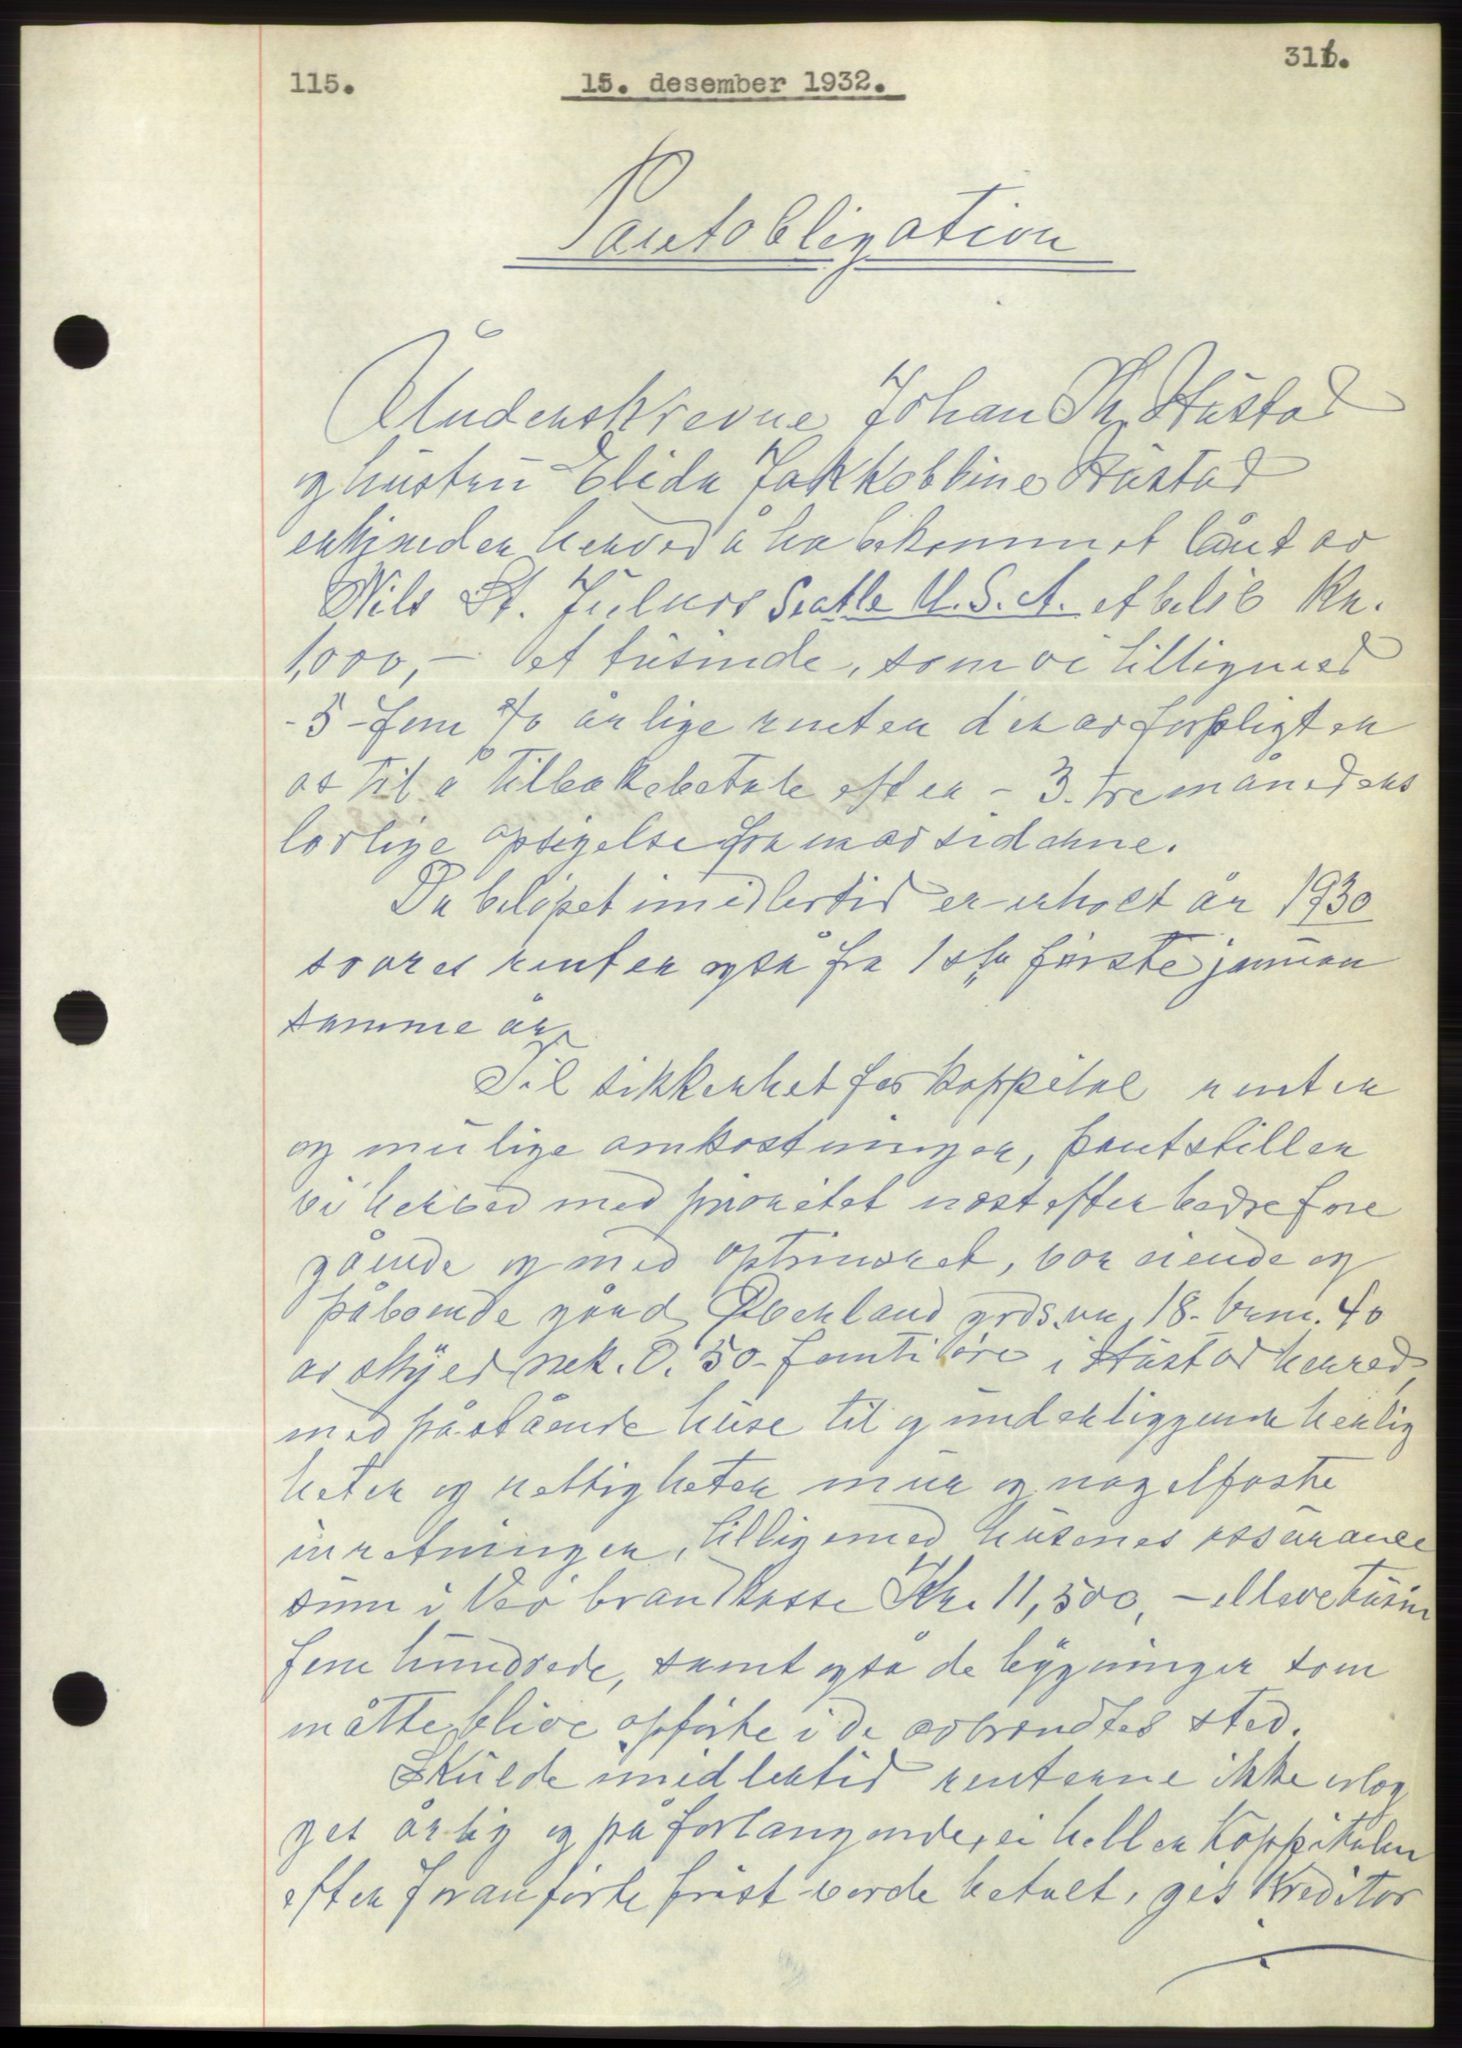 115.
15. desember 1932.
316.
Pantobligation
Underskrevne Johan Th. Hustad
og hustru Elida Jakkobbine Hustad
erkjender herved å ha bekommet lånt av
Nils St. Julnes Seatle U.S.A. et beløb Kr.
1,000,- et tusinde, som vi tilligemed
- 5 - fem % årlige renter derav forpligter
os til å tilbakebetale efter - 3. tre måneders
lovlige opsigelse fra en av siderne.
Da beløpet imidlertid er erholt år 1930
svares renter også fra 1ste første januar
samme år.
Til sikkerhet for kappital renter
og mulige omkostninger, pantstiller
vi herved med prioritet næst efter bedre fore
gående og med optrinsret, vor eiende og
påboende gård Øverland grds.nr. 18. brnr. 40
av skyld mrk. 0.50 - femti øre i Hustad herred,
med påstående huse til og underliggende herlig
heter og rettigheter mur og nagelfaste
inretninger, tilligemed husenes assurance
sum i Veø brandkasse Kr. 11,500,- ellevetusin
fem hundrede, samt også de bygninger som
måtte blive opførte i de avbrændtes sted.
Skulde imidlertid renterne ikke erlæg
ges årlig og på forlangende, ei heller Kappitalen
efter foranførte frist vorde betalt, gis Kreditor